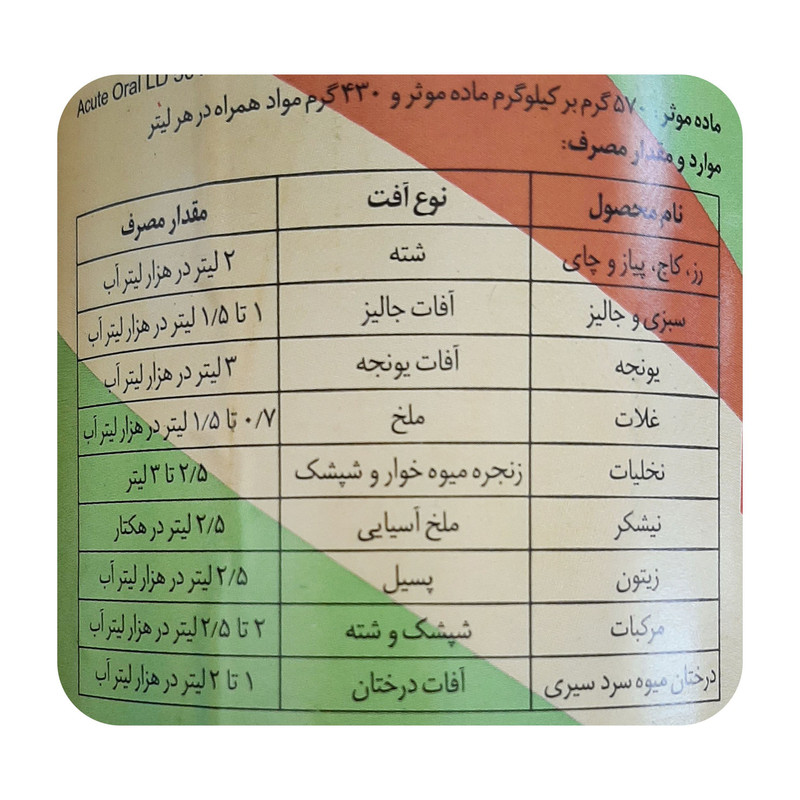 Acute Oral LD 50
ماده موثر: ۵۷۰ گرم بر کیلوگرم ماده موثر و ۴۳۰ گرم مواد همراه در هر لیتر
موارد و مقدار مصرف:
نام محصول نوع آفت مقدار مصرف
رز، کاج، پیاز و چای شته ۲ لیتر در هزار لیتر آب
سبزی و جالیز آفات جالیز ۱ تا ۱/۵ لیتر در هزار لیتر آب
یونجه آفات یونجه ۳ لیتر در هزار لیتر آب
غلات ملخ ۰/۷ تا ۱/۵ لیتر در هزار لیتر آب
نخلیات زنجره میوه خوار و شپشک ۲/۵ تا ۳ لیتر
نیشکر ملخ آسیایی ۲/۵ لیتر در هکتار
زیتون پسیل ۲/۵ لیتر در هزار لیتر آب
مرکبات شپشک و شته ۲ تا ۲/۵ لیتر در هزار لیتر آب
درختان میوه سرد سیری آفات درختان ۱ تا ۲ لیتر در هزار لیتر آب